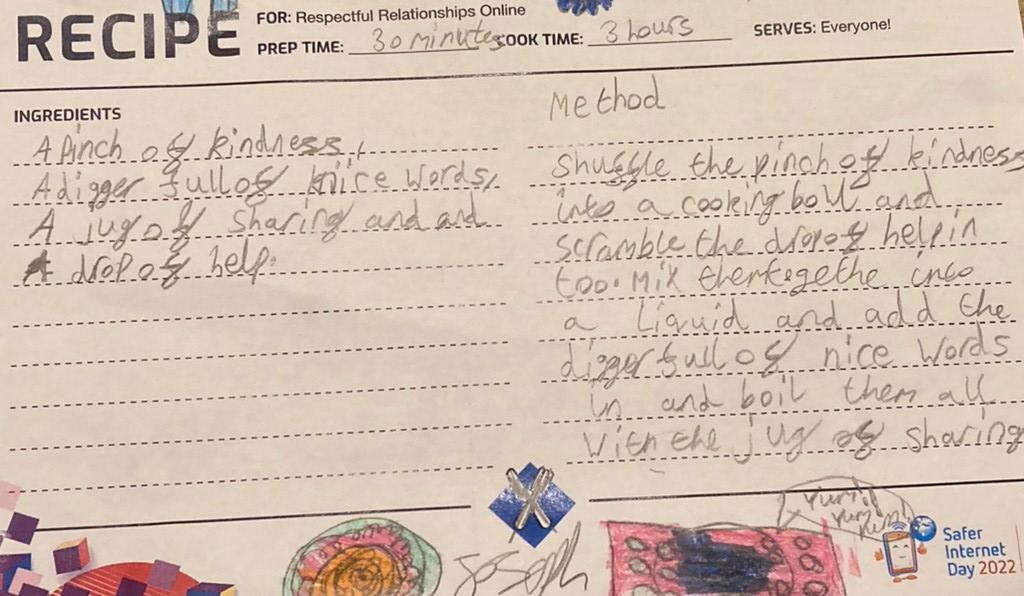 RECIPE
FOR: Respectful Relationships Online
PREP TIME: 30 minutes COOK TIME: 3 hours SERVES: Everyone!
INGREDIENTS
A Pinch of kindness,
A digger full of nice words,
A jug of sharing and and
A drop of help.
Method
Shuffle the pinch of kindness
into a cooking boll and
scramble the drop of help in
too. Mix thertegethe into
a liquid and add the
digger full of nice words
in and boil them all
With the jug of sharing
Yum!
Yum
Yum!
Joseph
Safer
Internet
Day 2022